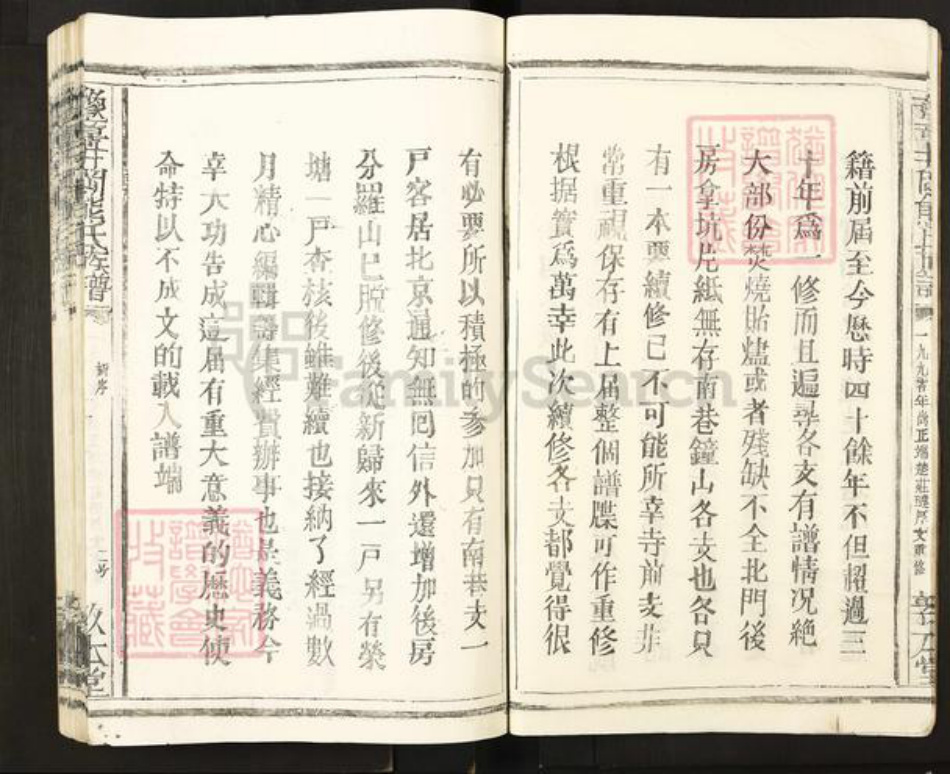 籍前屆至今歷時四十餘年不但超過三
十年爲一修而且遍尋各支有譜情况絶
大部份焚燒貽燼或者殘缺不全北門後
房拿坑片紙無存南巷鐘山各支也各只
有一本要續修已不可能所幸寺前支非
常重視保存有上届整個譜牒可作重修
根据實爲萬幸此次續修各支都覺得很
有必要所以積極的參加只有南巷支一
戸客居北京通知無囘信外還增加後房
分羅山已脱修後從新歸來一戸另有榮
塘一戸查核後雖難續也接納了經過數
月精心編輯籌集經費辦事也是義務今
幸大功告成這届有重大意義的歷史使
命特以不成文的載入譜端
熊氏族譜
新序
二
FamilySearch